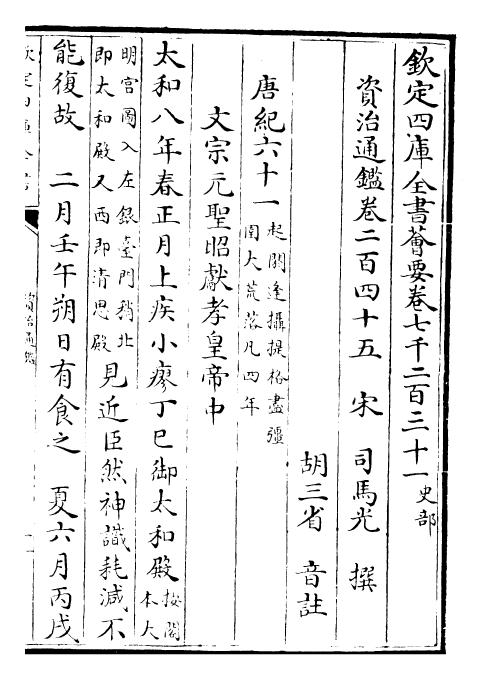 欽定四庫全書薈要卷七千二百三十一史部
資治通鑑卷二百四十五　宋　司馬光　撰
胡三省　音註
唐紀六十一起閼逢攝提格盡彊圉大荒落凡四年
文宗元聖昭獻孝皇帝中
太和八年春正月上疾小瘳丁巳御太和殿按閣本大
明宫圖入左銀臺門稍北即太和殿又西即清思殿見近臣然神識耗減不
能復故　二月壬午朔日有食之　夏六月丙戌
資治通鑑